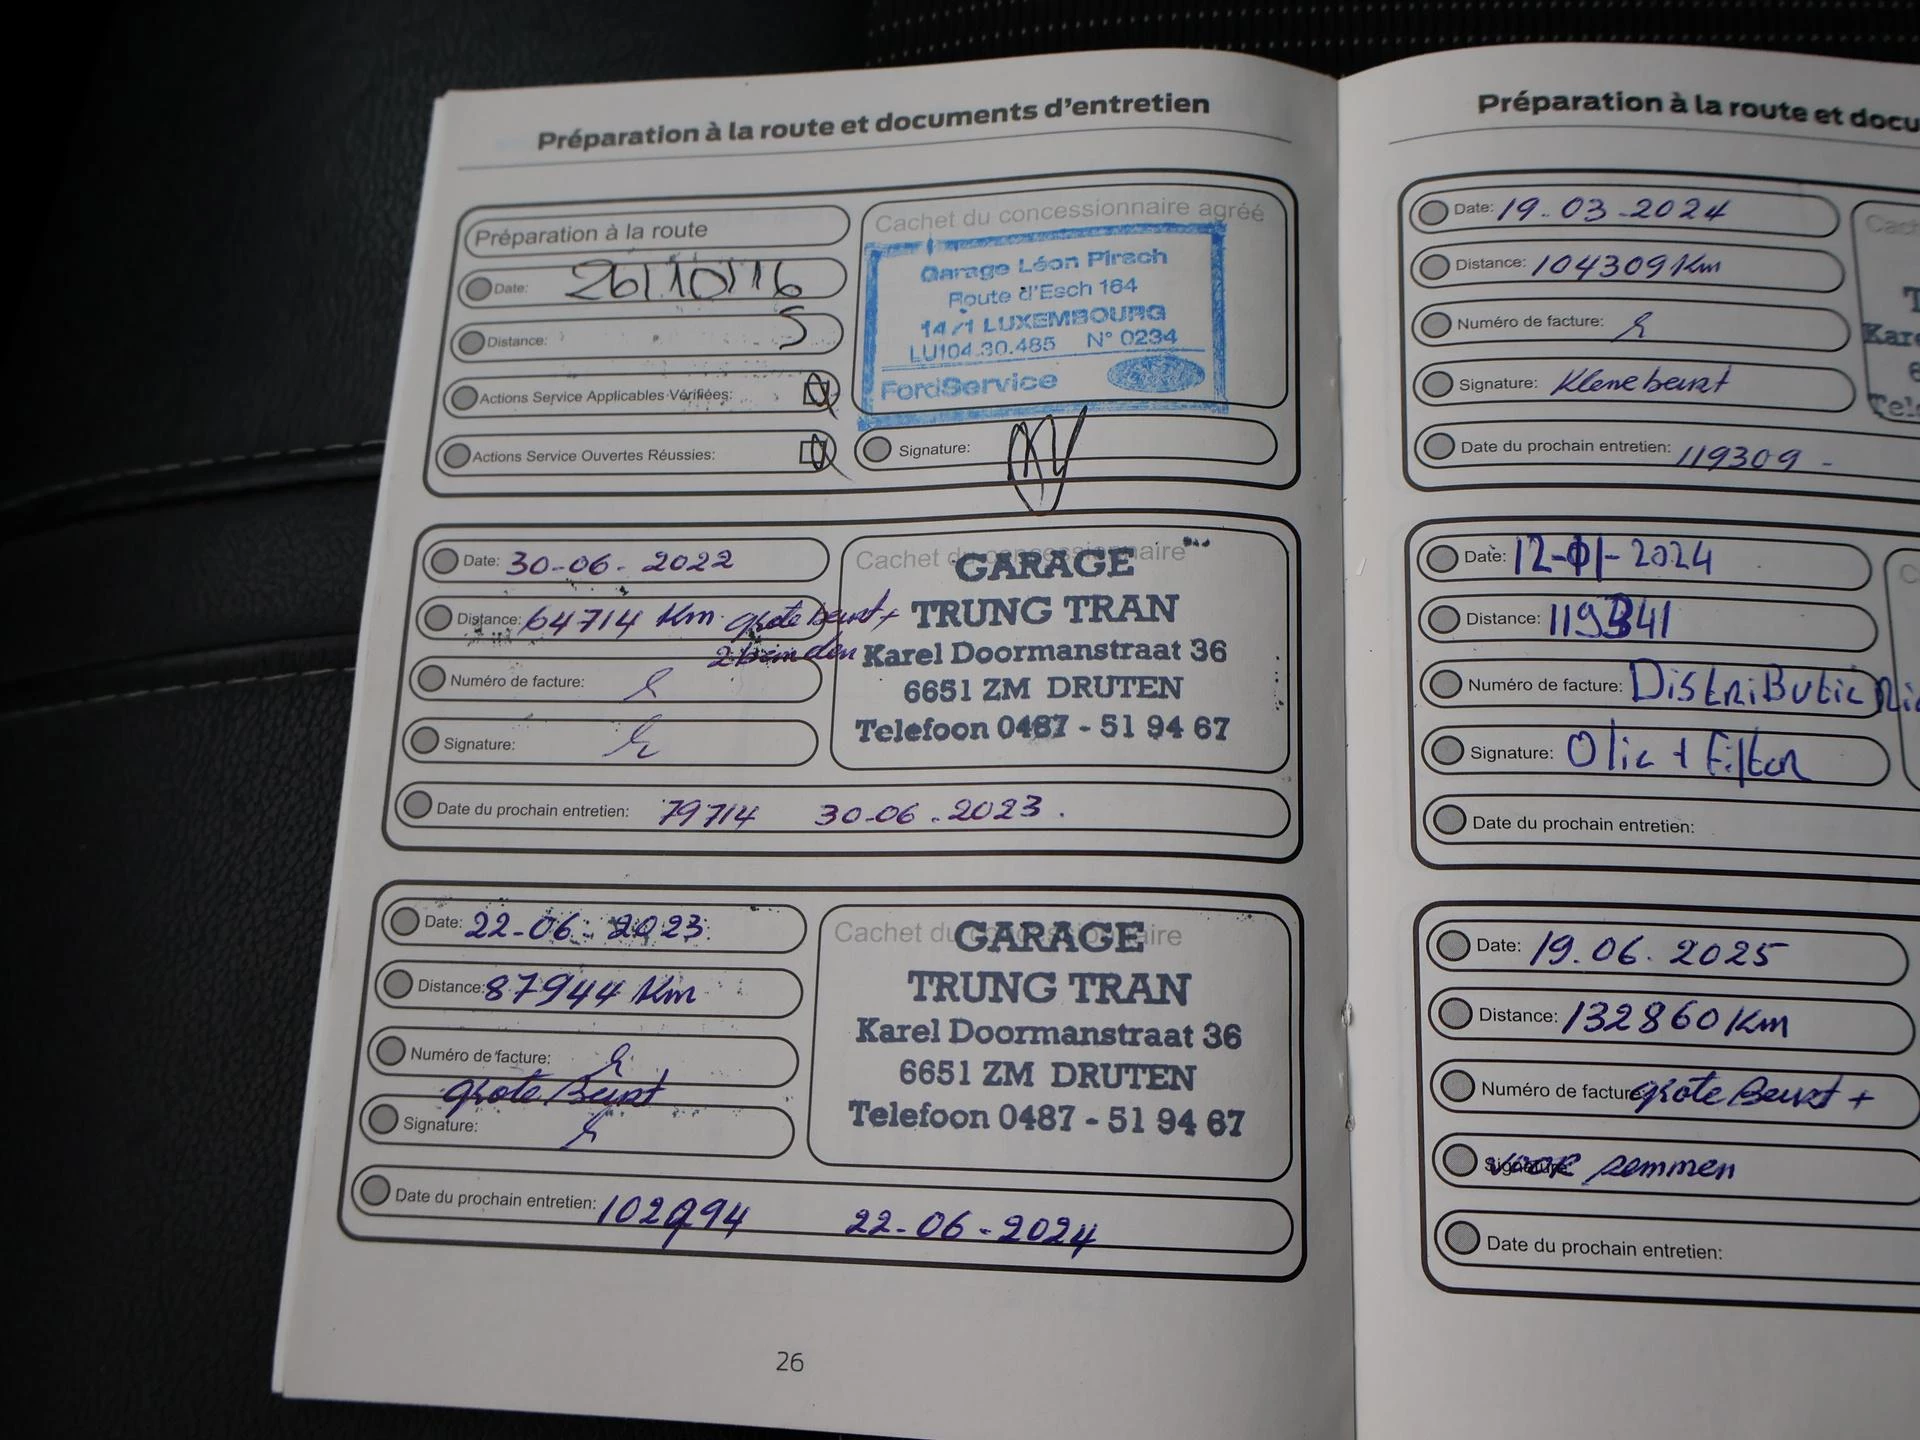 Préparation à la route et documents d'entretien
Préparation à la route
Date: 26/10/16
Distance: 5
Actions Service Applicables Vérifiées:
Actions Service Ouvertes Réussies:
Cachet du concessionnaire agréé
Garage Léon Pirsch
Route d'Esch 164
1471 LUXEMBOURG
LU104.30.485 N° 0234
FordService
Signature:
Date: 30-06-2022
Distance: 64714 Km grote beurt +
2 banden
Numéro de facture:
Signature:
Cachet du concessionnaire
GARAGE
TRUNG TRAN
Karel Doormanstraat 36
6651 ZM DRUTEN
Telefoon 0487 - 51 94 67
Date du prochain entretien: 79714 30-06.2023.
Date: 22-06-2023
Distance: 87944 Km
Numéro de facture:
grote Beurt
Signature:
Cachet du concessionnaire
GARAGE
TRUNG TRAN
Karel Doormanstraat 36
6651 ZM DRUTEN
Telefoon 0487 - 51 94 67
Date du prochain entretien: 102994 22-06-2024
26
Préparation à la route et docu
Date: 19.03-2024
Distance: 104309 Km
Numéro de facture:
Signature: Kleine beurt
Date du prochain entretien: 119309 -
Cach
T
Kare
6
Tele
Date: 12-01-2024
Distance: 119341
Numéro de facture: Distributie
Signature: Olie + Filter
Date du prochain entretien:
C
Date: 19.06.2025
Distance: 132860 Km
Numéro de facture grote Beurt +
Signature voor remmen
Date du prochain entretien: